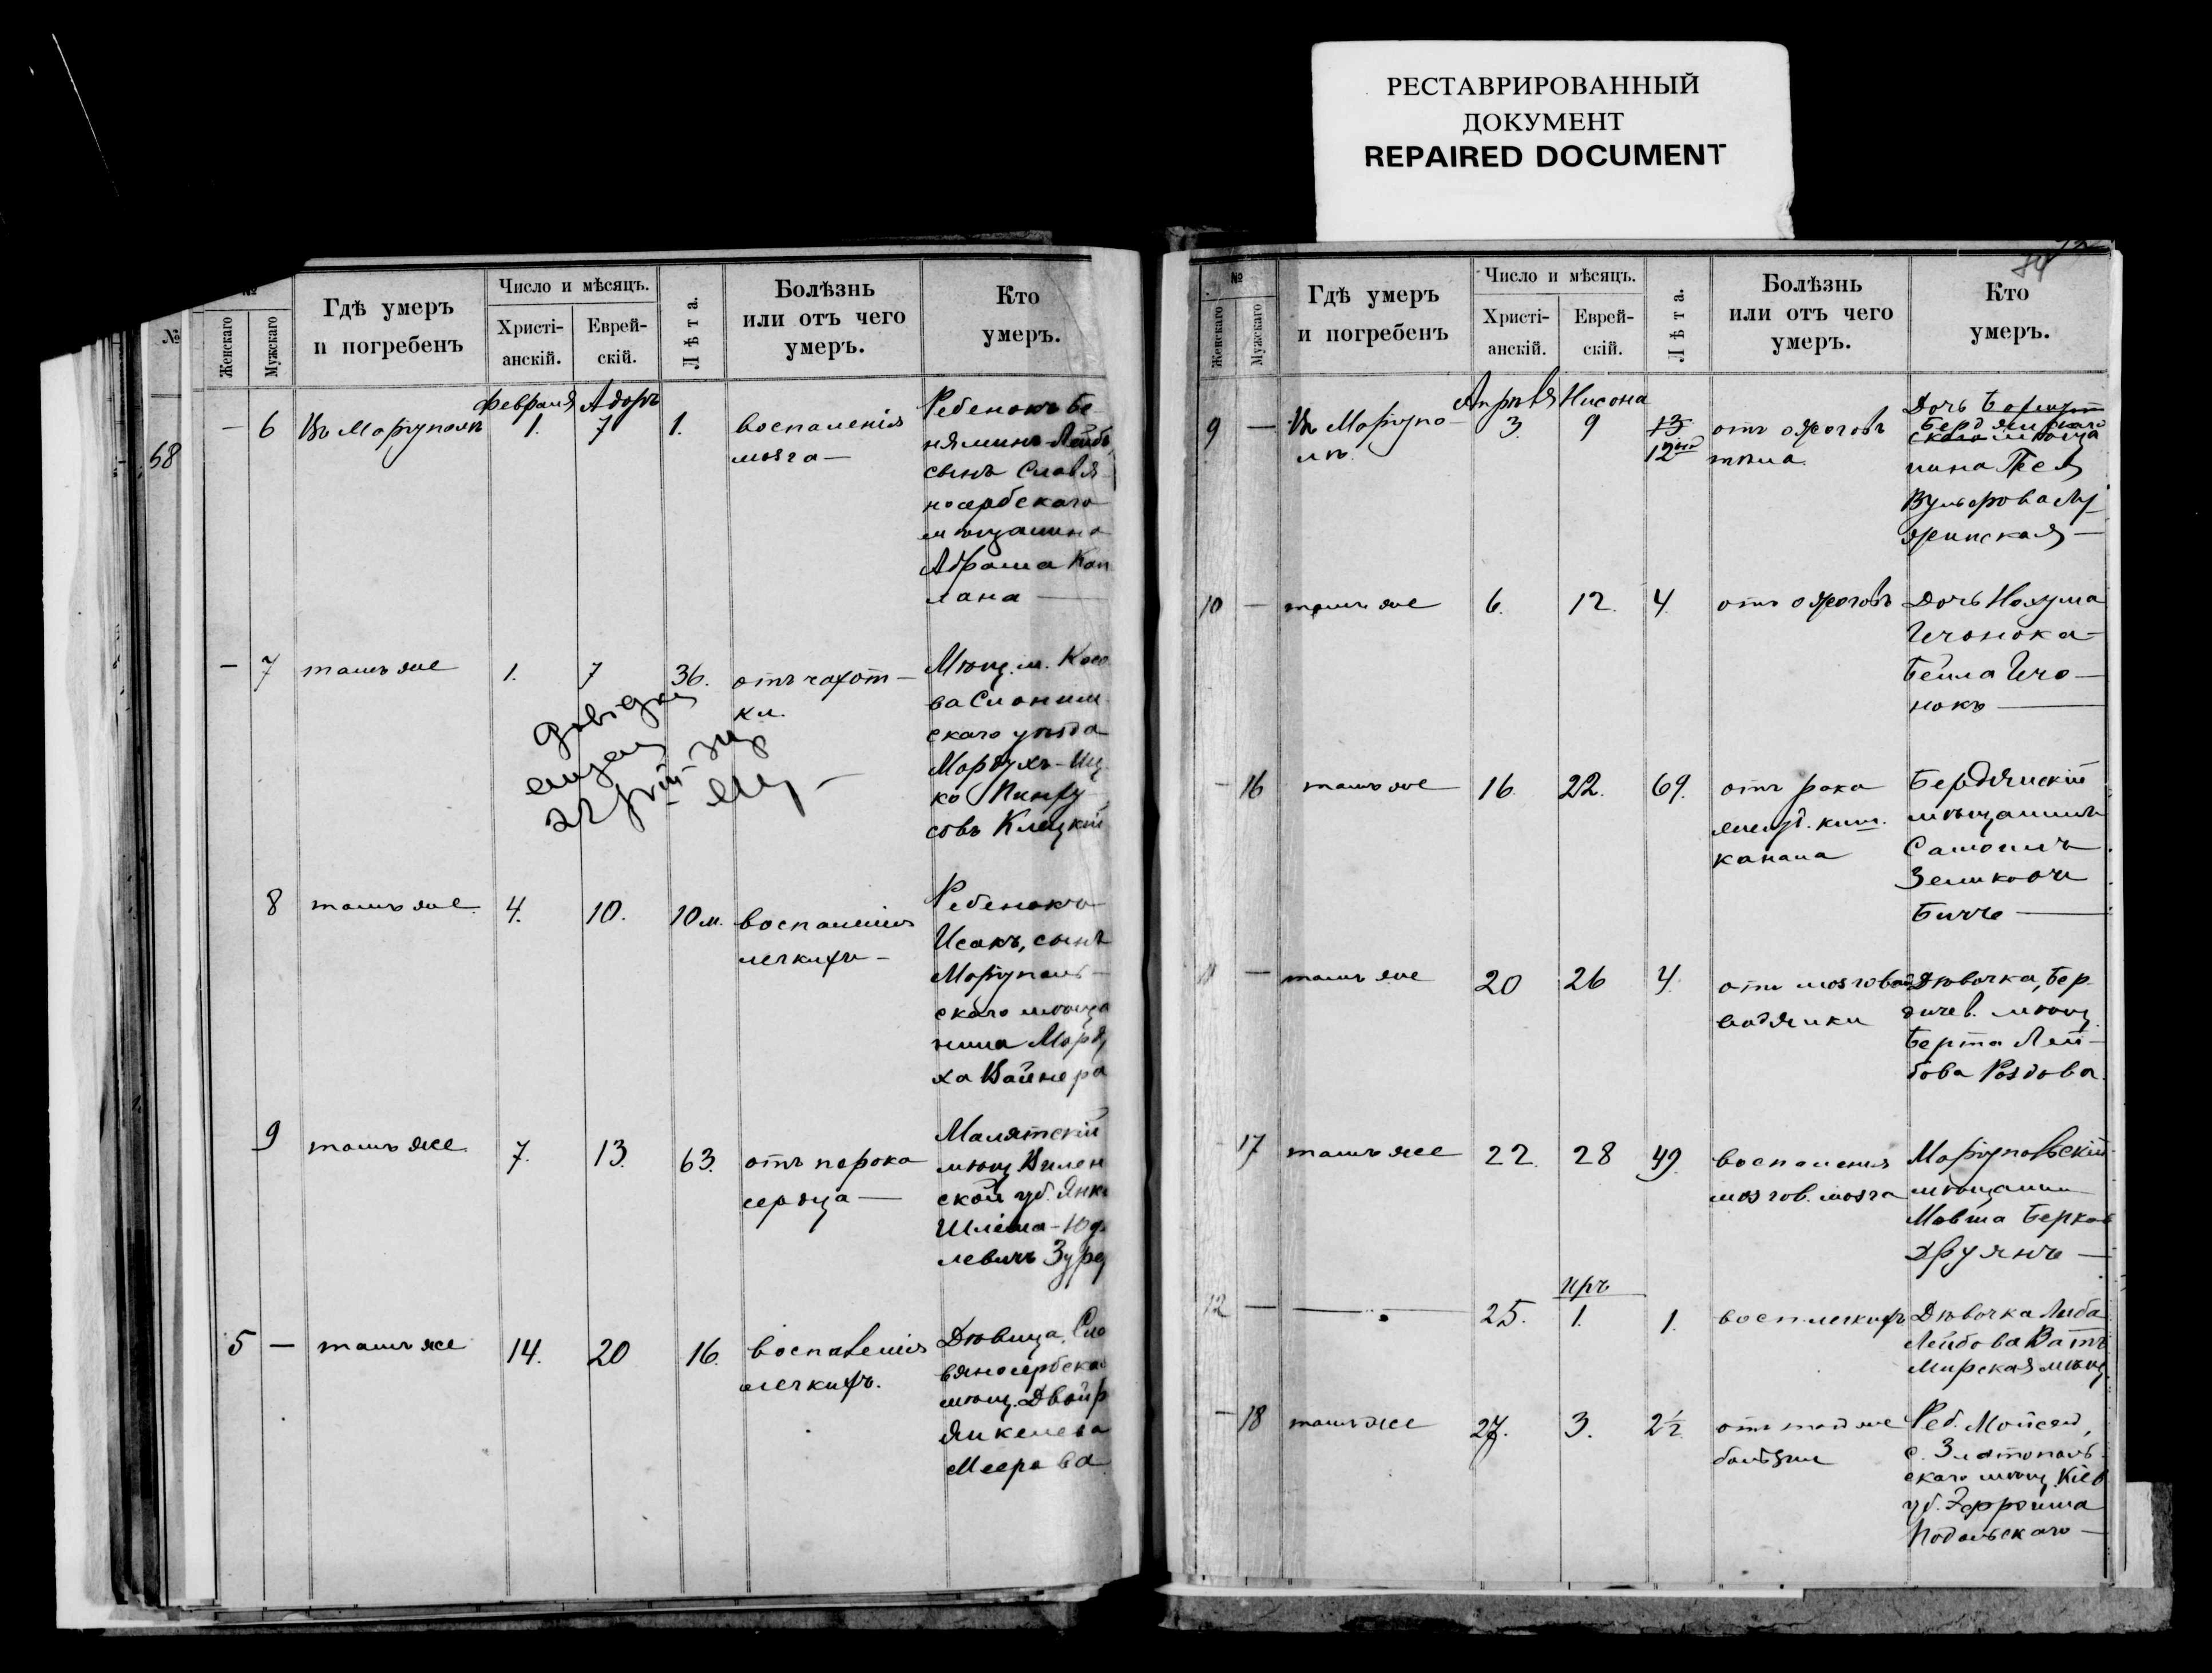 РЕСТАВРИРОВАННЫЙ
ДОКУМЕНТ
REPAIRED DOCUMENT
№
Женскаго
Мужскаго
Гдѣ умеръ
и погребенъ
Число и мѣсяцъ.
Христі-
анскій.
Еврей-
скій.
Лѣта.
Болѣзнь
или отъ чего
умеръ.
Кто
умеръ.
68
— 6 Въ Маріуполѣ Февраля 1. Адоръ 7 1.
воспаленія
мозга —
Ребенокъ Бе
няминъ-Лейбъ,
сынъ Славя
носербскаго
мѣщанина
Абрама Кап
лана —
— 7 тамъ же 1. 7 36.
отъ чахот-
ки.
Мѣщ. м. Косо
ва Слоним
скаго уѣзда
Мордухъ-Иц
ко Пинху
совъ Клецкій
8 тамъ же. 4. 10. 10 м.
воспаленія
легкихъ —
Ребенокъ
Исакъ, сынъ
Маріуполь-
скаго мѣща
нина Морду
ха Вайнера
9 тамъ же. 7. 13. 63.
отъ порока
сердца —
Малятскій
мѣщ. Вилен
ской губ. Янке
Шлёма-Юде
левичъ
5 — тамъ же 14. 20 16.
воспаленія
легкихъ.
Дѣвица, Сла
вяносербская
мѣщ. Двойра
Янкелева
Меерова
№
Женскаго
Мужскаго
Гдѣ умеръ
и погребенъ
Число и мѣсяцъ.
Христі-
анскій.
Еврей-
скій.
Лѣта.
Болѣзнь
или отъ чего
умеръ.
Кто
умеръ.
84
9 — Въ Маріупо-
лѣ.
Апрѣля 3. Нисона 9 13
12
отъ ожоговъ
тѣла
Дочь
Бердянскаго
мѣща
нина Песя
Вульфова
10 — тамъ же 6. 12. 4.
отъ ожоговъ
Дочь Нахума
Ичонока —
Бейла Ичо-
нокъ —
— 16 тамъ же 16. 22. 69.
отъ рака
желуд. киш.
канала
Бердянскій
мѣщанинъ
Самоилъ
Зеликовъ
Бичъ —
11 — тамъ же 20 26 4.
отъ мозговой
водянки
Дѣвочка, Бер
дичев. мѣщ.
Берта Лей-
бова Роздова.
17 тамъ же 22. 28 49.
воспаленія
мозгов. мозга
Маріупольскій
мѣщанин
Мовша Берков
Друянъ —
12 — — 25. иръ 1. 1.
восп. легкихъ
Дѣвочка Либа
Лейбова Ватъ
Мирская мѣщ.
— 18 тамъ же 27. 3. 2½
отъ той же
болѣзни
Реб. Мойсей,
с. Златополь
скаго мѣщ. Кіев
губ. Эфроима
Подольскаго —